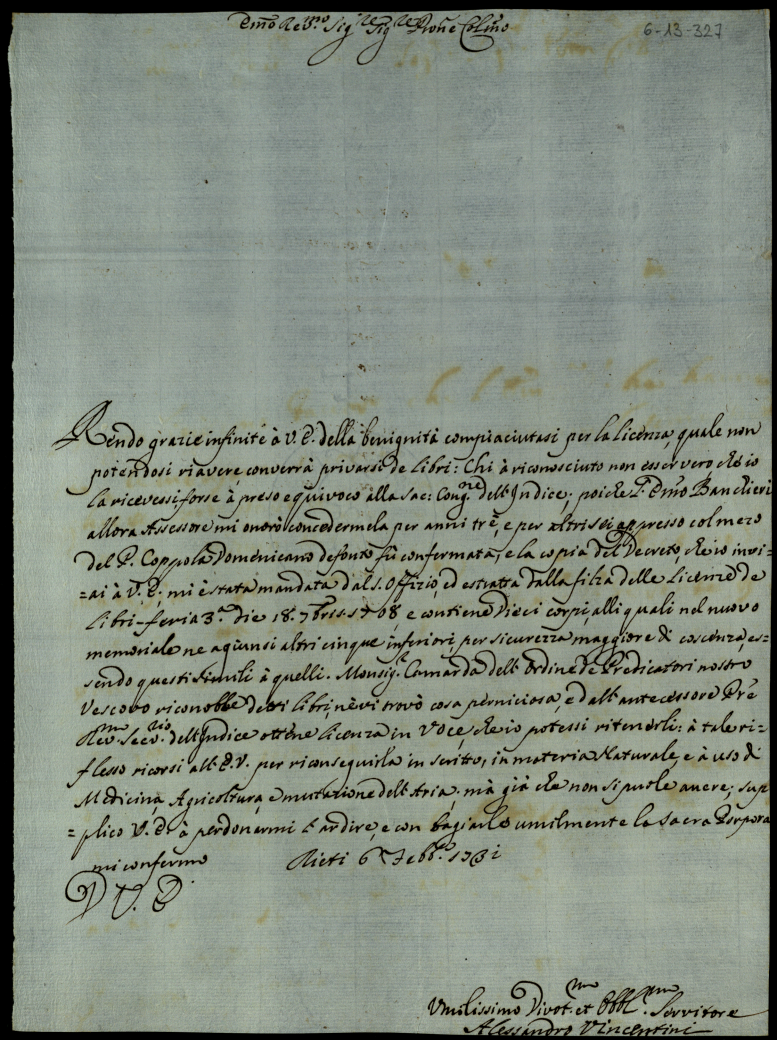 Emo Re.mo Sig.re Sig.re Prone Colmo
6-13-327
Rendo grazie infinite à V. E. della benignità compiaciutasi per la licenza, quale non
potendosi riavere, converrà privarsi de libri: Chi à riconosciuto non esser vero, che io
la ricevessi, forse à preso equivoco alla Sac: Cong.ne dell'Indice; poiche l'Emo Banchieri
allora Assessore mi onorò concedermela per anni trè, e per altri sei appresso col mezo
del P. Coppola Domenicano defonto fù confermata, e la copia del Decreto, che io invi=
=ai à V. E. mi è stata mandata dal S. Offizio, ed estratta dalla filza delle Licenze de
Libri = feria 3.a die 18. 7bris 1708, e contiene Dieci corpi, alli quali nel nuovo
memoriale ne agiunsi altri cinque inferiori, per sicurezza maggiore di coscenza, es-
sendo questi simili à quelli. Monsig.r Camarda dell'Ordine de Predicatori nostro
Vescovo riconobbe detti libri, nè vi trovò cosa perniciosa, e dall'antecessore Pre
Rev.mo Secr.rio dell'Indice ottène licenza in Voce, che io potessi ritenerli: à tale ri=
flesso ricorsi all'E.V. per riconseguirla in scritto, in materia Naturale, e à uso di
Medicina Agricoltura, e mutazione dell'Aria: mà già che non si puole avere; sup
=plico V. E. à perdonarmi l'ardire, e con bagiarle umilmente la Sacra Porpora
mi confermo Rieti 6 Febb.o 1731
D V. E.
Umilissimo Divot.mo et Obbl.mo Servitore
Alessandro Vincentini